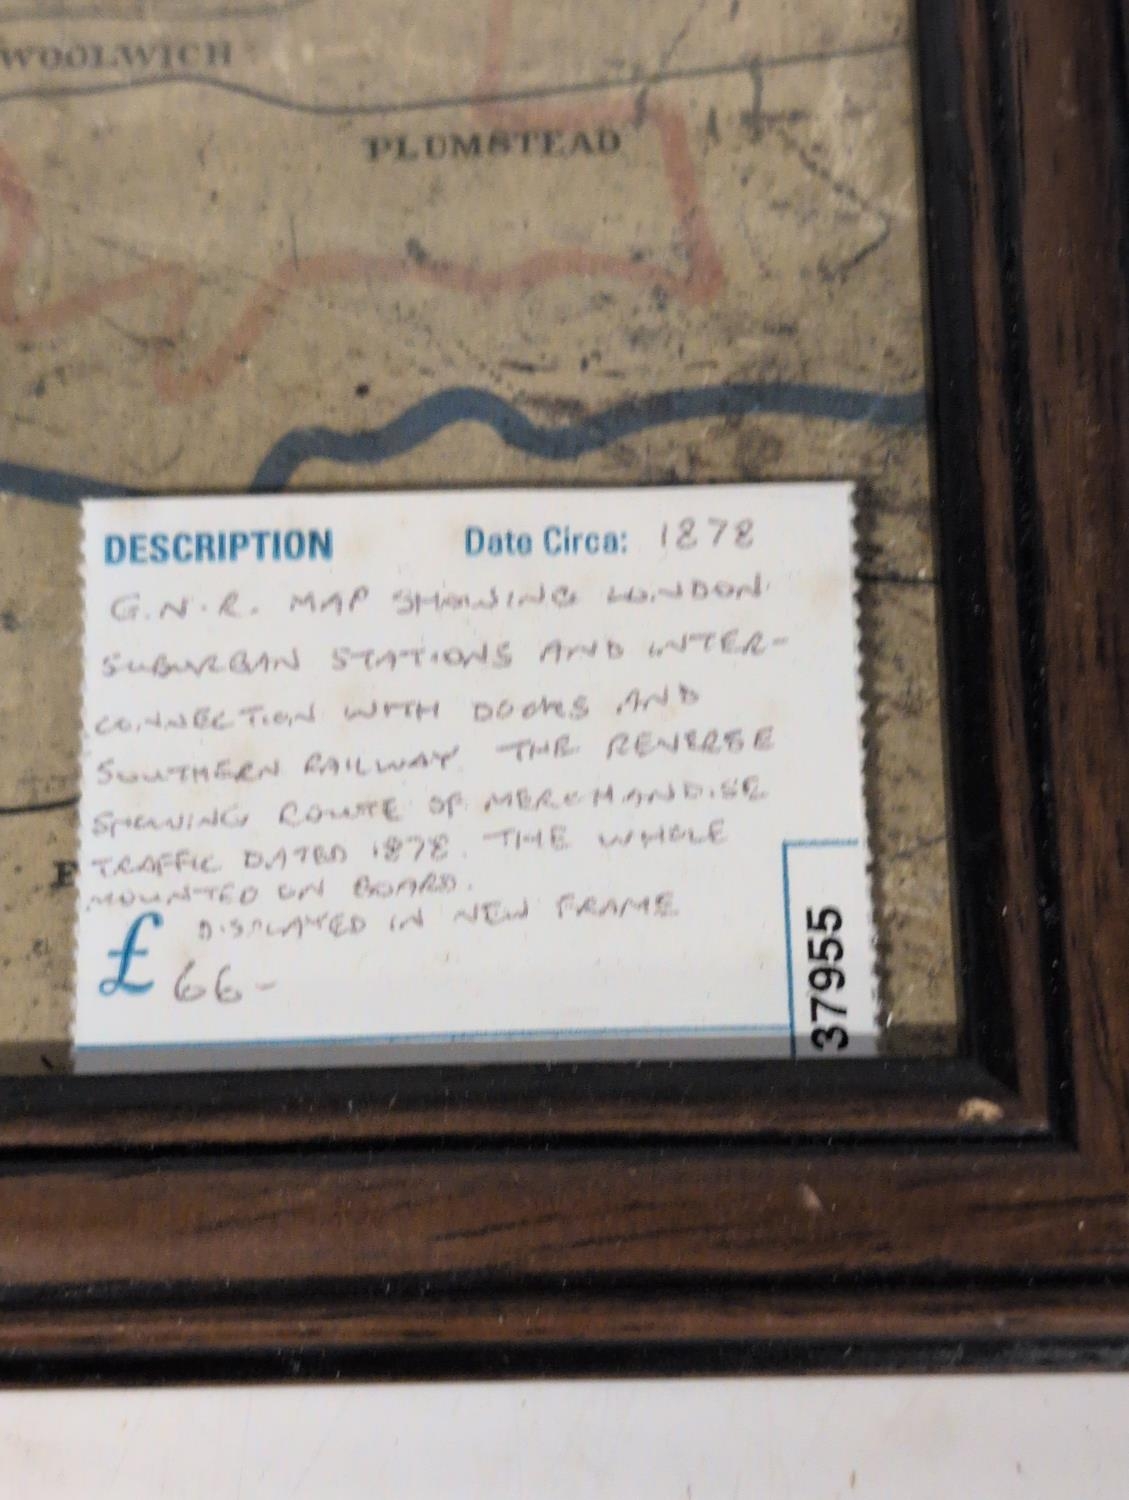 WOOLWICH
PLUMSTEAD
DESCRIPTION Date Circa: 1878
G.N.R. MAP SHOWING LONDON
SUBURBAN STATIONS AND INTER-
CONNECTION WITH DOCKS AND
SOUTHERN RAILWAY. THE REVERSE
SHOWING ROUTE OF MERCHANDISE
TRAFFIC DATED 1878. THE WHOLE
MOUNTED ON BOARD.
DISPLAYED IN NEW FRAME
£ 66-
37955